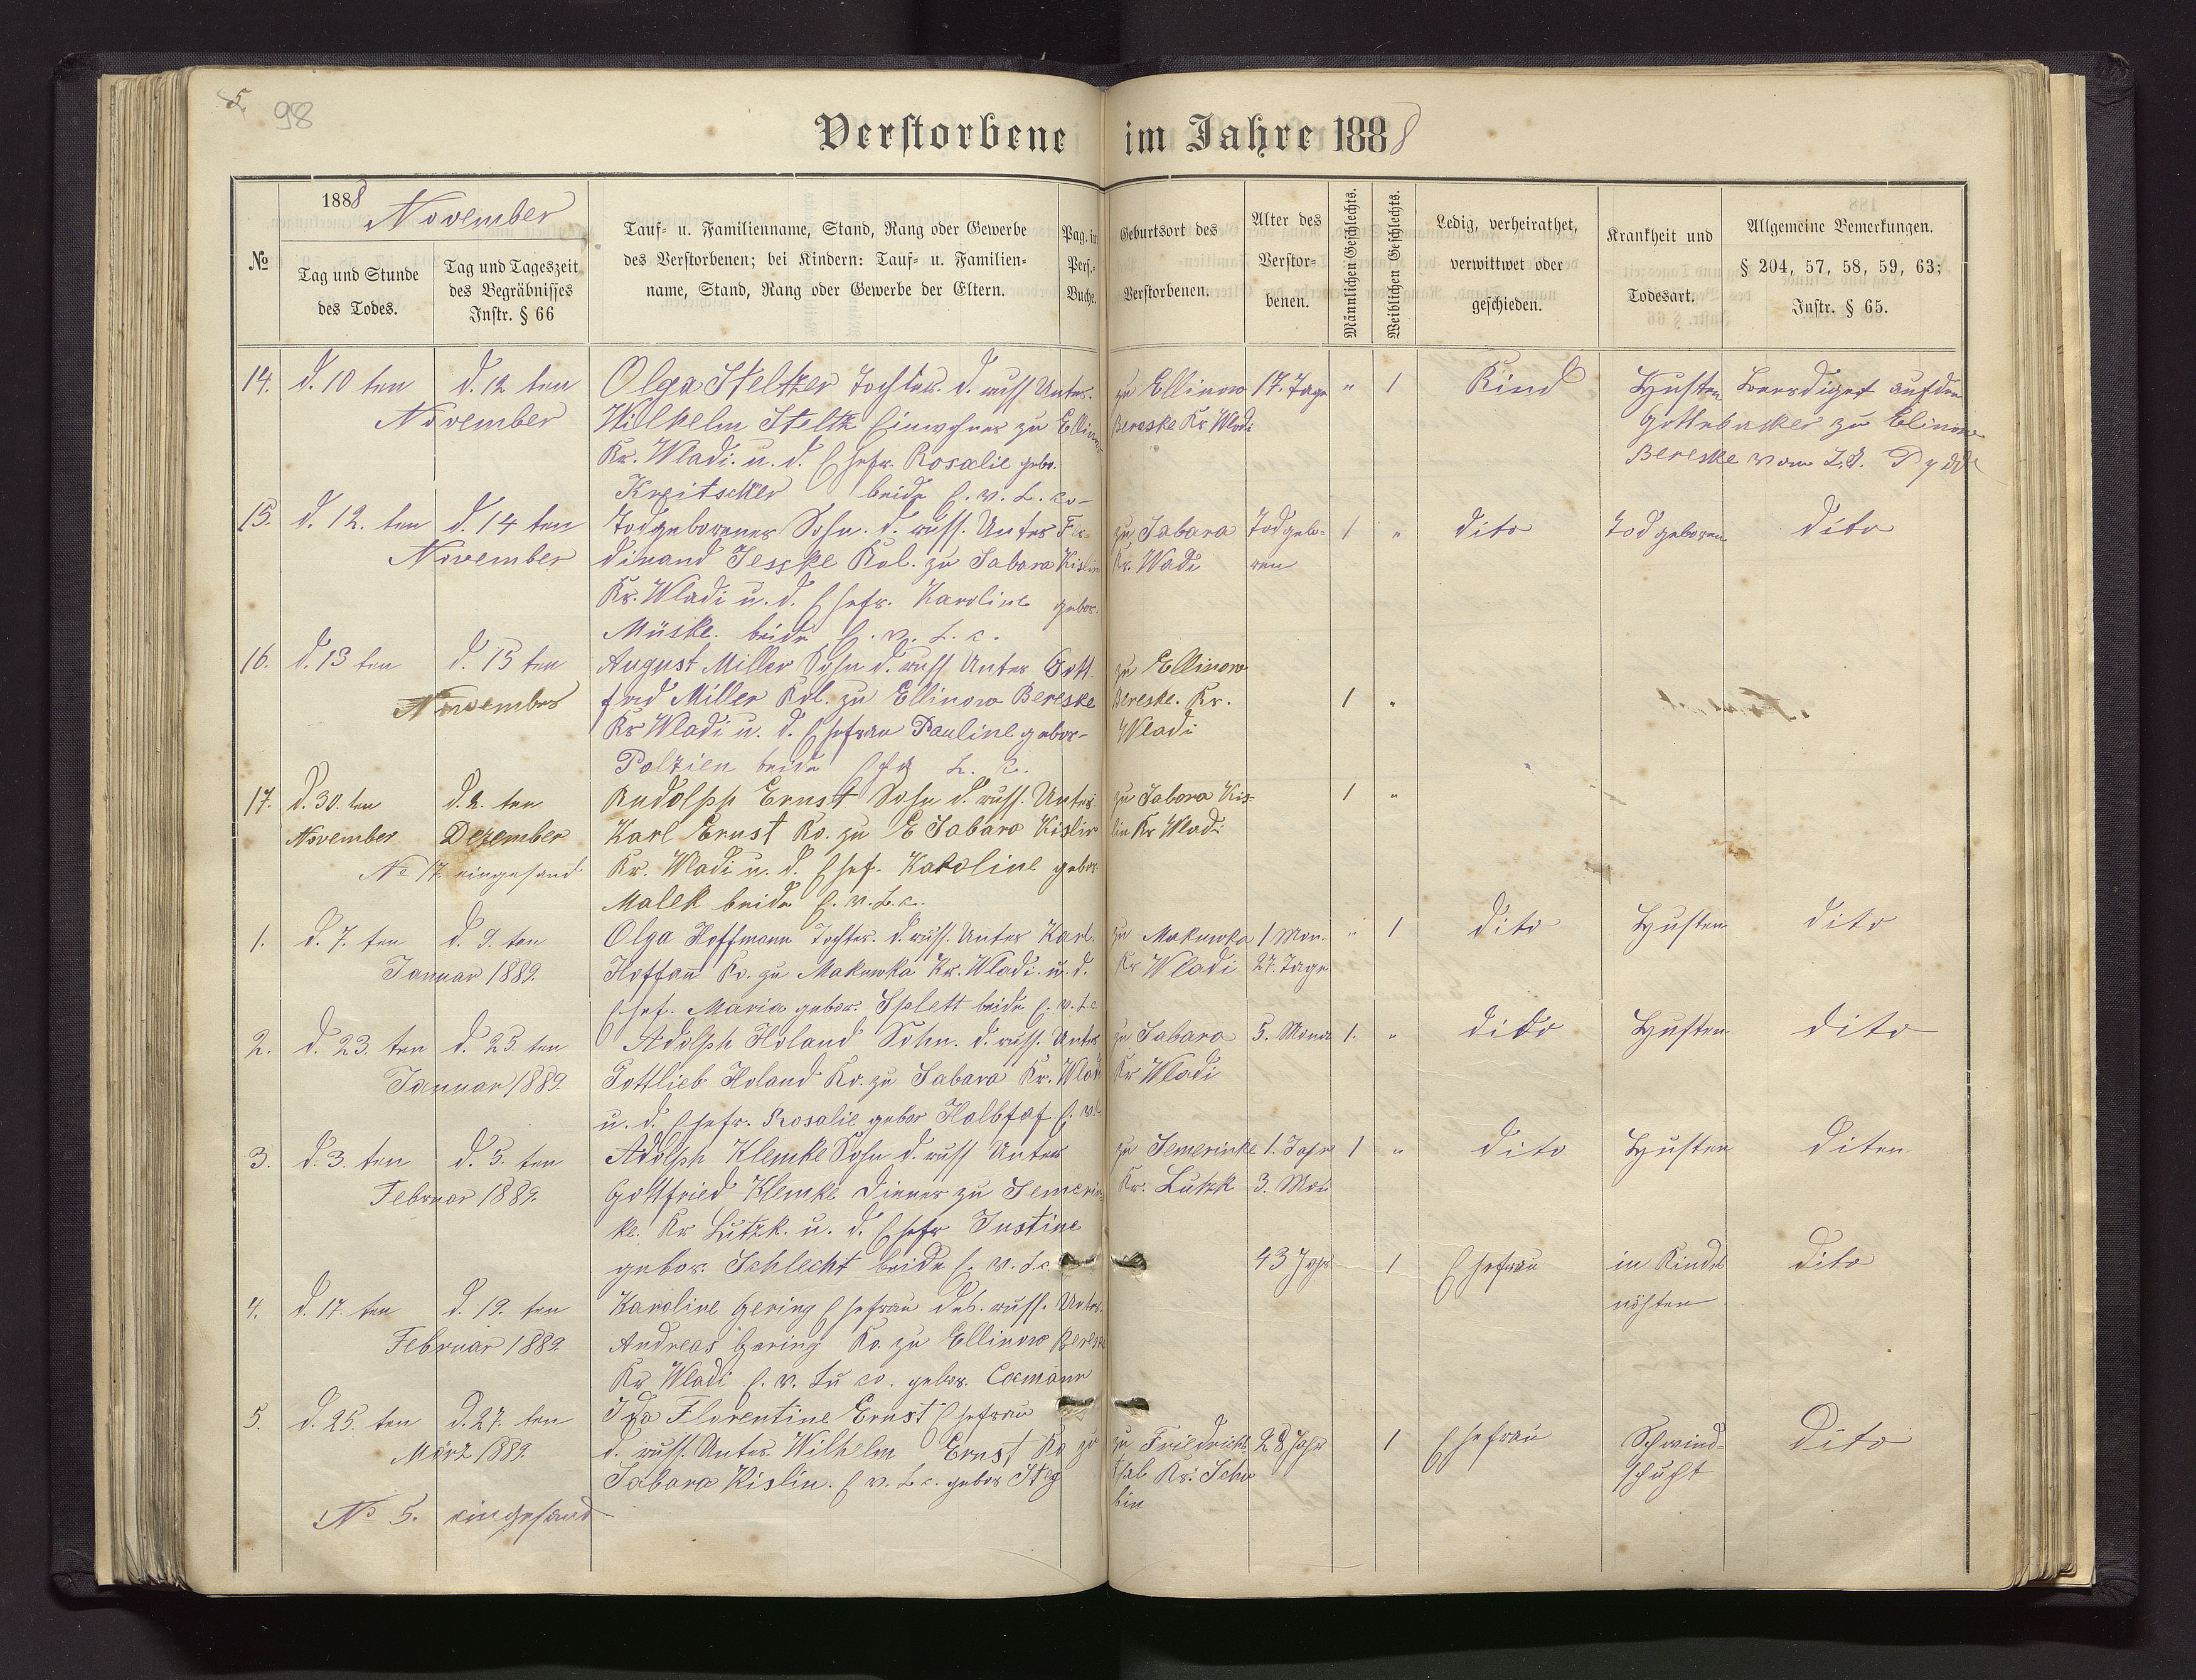 5.
98
Verstorbene im Jahre 1888
№
1888 November
Tag und Stunde des Todes.
Tag und Tageszeit des Begräbnisses Instr. § 66
Tauf- u. Familienname, Stand, Rang oder Gewerbe
des Verstorbenen; bei Kindern: Tauf- u. Familien-
name, Stand, Rang oder Gewerbe der Eltern.
Pag. im Pers.- Buche.
Geburtsort des Verstorbenen.
Alter des Verstor- benen.
Männlichen Geschlechts.
Weiblichen Geschlechts.
Ledig, verheirathet, verwittwet oder geschieden.
Krankheit und Todesart.
Allgemeine Bemerkungen.
§ 204, 57, 58, 59, 63;
Instr. § 65.
14. d. 10 ten d. 12 ten Olga Steltzer Tochter. d. russ Unter. zu Ellinow 17. Tage " 1 Kind Husten Beerdiget auf den
November Wilhelm Steltz Einwohner zu Ellinow Bereske Kr Wladi Gottesacker zu Elinow
Kr. Wladi. u. d. Ehefr. Rosalie gebr. Bereske vom
Kreitscher beide E. v. L. co-
15. d. 12. ten d. 14 ten Todgeborener Sohn. d. russ. Unter Fer- zu Sabara Todgebo- 1 " dito Tod geboren dito
November dinand Jesske Kol. zu Sabara Kislin Kr. Wadi ren
Kr. Wladi u. d. Ehefr. Karoline gebor.
Müske. beide E. v. L. c.
16. d. 13 ten d. 15 ten August Miller Sohn d. russ Unter Gott zu Ellinow
November fred Miller Kol. zu Ellinow Bereske Bereske. Kr. 1 "
Kr Wladi u. d. Ehefrau Pauline gebor- Wladi
Polzien beide L. c.
17. d. 30. ten d. 2. ten Rudolph Ernst Sohn d. russ. Unter zu Sabara Kis- 1 "
November Dezember Karl Ernst Ko. zu E Sabara Kislin lin Kr Wladi
No 17. eingesand Kr. Wladi u. d. Ehef. Karoline gebor
Malek beide E. v. L. c.
1. d. 7. ten d. 9. ten Olga Hoffmann Tochter. d. russ. Unter Karl. zu Makowka 1 Mon. " 1 dito Husten dito
Januar 1889. Hoffan Ko. zu Makowka Kr. Wladi. u. d. Kr Wladi 27. Tage
Ehef. Maria gebor. beide E. v. L. c
2. d. 23. ten d. 25. ten Adolph Holand Sohn. d. russ. Unter zu Sabara 5. Mona 1. " dito Husten dito
Januar 1889. Gottlieb Holand Ko. zu Sabara Kr. Wladi Kr Wladi
u. d. Ehefr. Rosalie gebor E. v. L
3. d. 3. ten d. 5. ten Adolph Klemke Sohn d. russ Unter zu Semerinke 1. Jahr 1 " dito Husten diten
Februar 1889. Gottfried Klemke Diener zu Semerin- Kr. Lutzk 3. Mon
ke. Kr Lutzk. u. d. Ehefr Justine
gebor. Schlecht beide E. v. L. c.
4. d. 17. ten d. 19. ten Karoline Gering Ehefrau des. russ. Unter. 43 Jahr 1 Ehefrau in Kindes dito
Februar 1889. Andreas Gering Ko. zu Ellinow Bereske nöhten
Kr Wladi E. v. Lu co. gebor.
5. d. 25. ten d. 27. ten Ida Florentine Ernst Ehefrau
März 1889. d. russ. Unter. Wilhelm Ernst Ko zu zu Friedrichs 28 Jahr 1 Ehefrau Schwind- Dito
Sabara Kislin. E v. L c. gebor thal Kr. Schu schuht
bin
No 5. eingesand